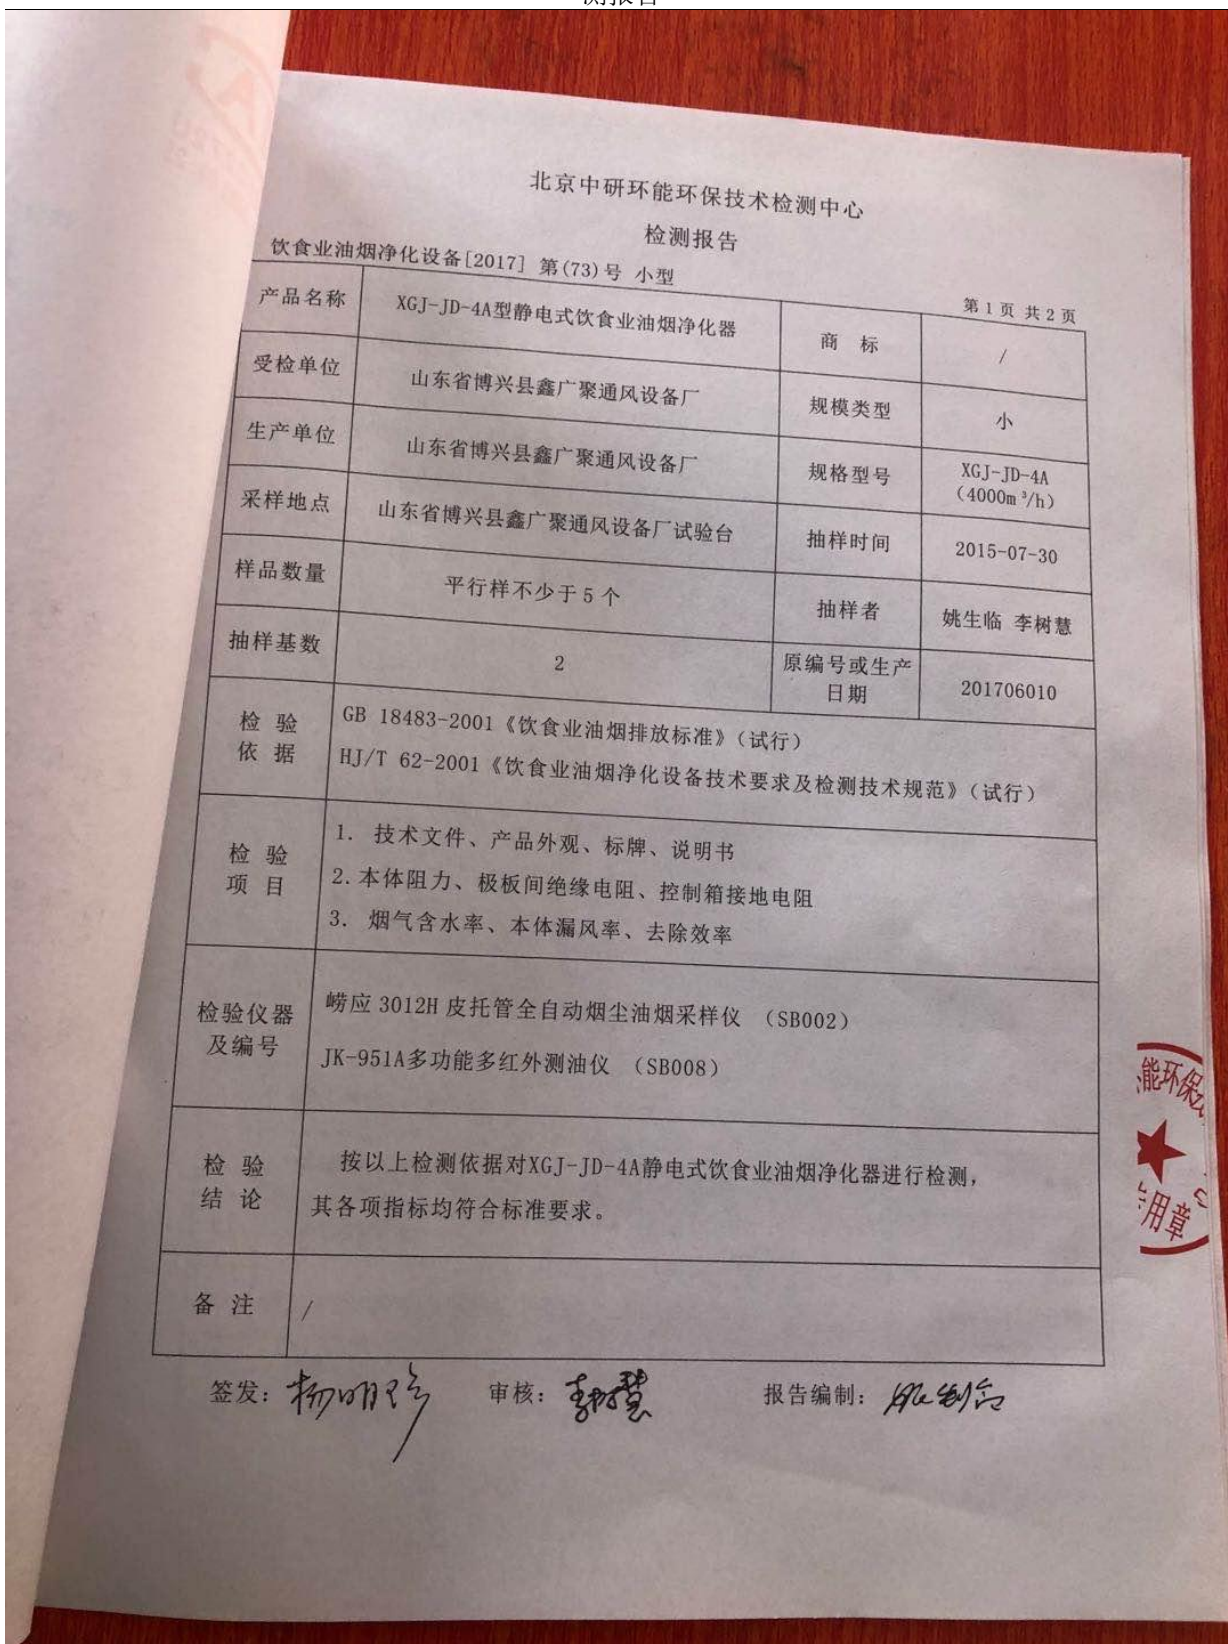 北京中研环能环保技术检测中心
检测报告
饮食业油烟净化设备[2017] 第(73)号 小型
第1页 共2页
产品名称 XGJ-JD-4A型静电式饮食业油烟净化器 商 标 /
受检单位 山东省博兴县鑫广聚通风设备厂 规模类型 小
生产单位 山东省博兴县鑫广聚通风设备厂 规格型号 XGJ-JD-4A
(4000m³/h)
采样地点 山东省博兴县鑫广聚通风设备厂试验台 抽样时间 2015-07-30
样品数量 平行样不少于5个 抽样者 姚生临 李树慧
抽样基数 2 原编号或生产
日期 201706010
检 验
依 据
GB 18483-2001《饮食业油烟排放标准》(试行)
HJ/T 62-2001《饮食业油烟净化设备技术要求及检测技术规范》(试行)
检 验
项 目
1. 技术文件、产品外观、标牌、说明书
2.本体阻力、极板间绝缘电阻、控制箱接地电阻
3. 烟气含水率、本体漏风率、去除效率
检验仪器
及编号
崂应3012H皮托管全自动烟尘油烟采样仪 (SB002)
JK-951A多功能多红外测油仪 (SB008)
检 验
结 论
按以上检测依据对XGJ-JD-4A静电式饮食业油烟净化器进行检测,
其各项指标均符合标准要求。
备 注 /
签发: 杨明珍 审核: 李树慧 报告编制:
能环保
用章